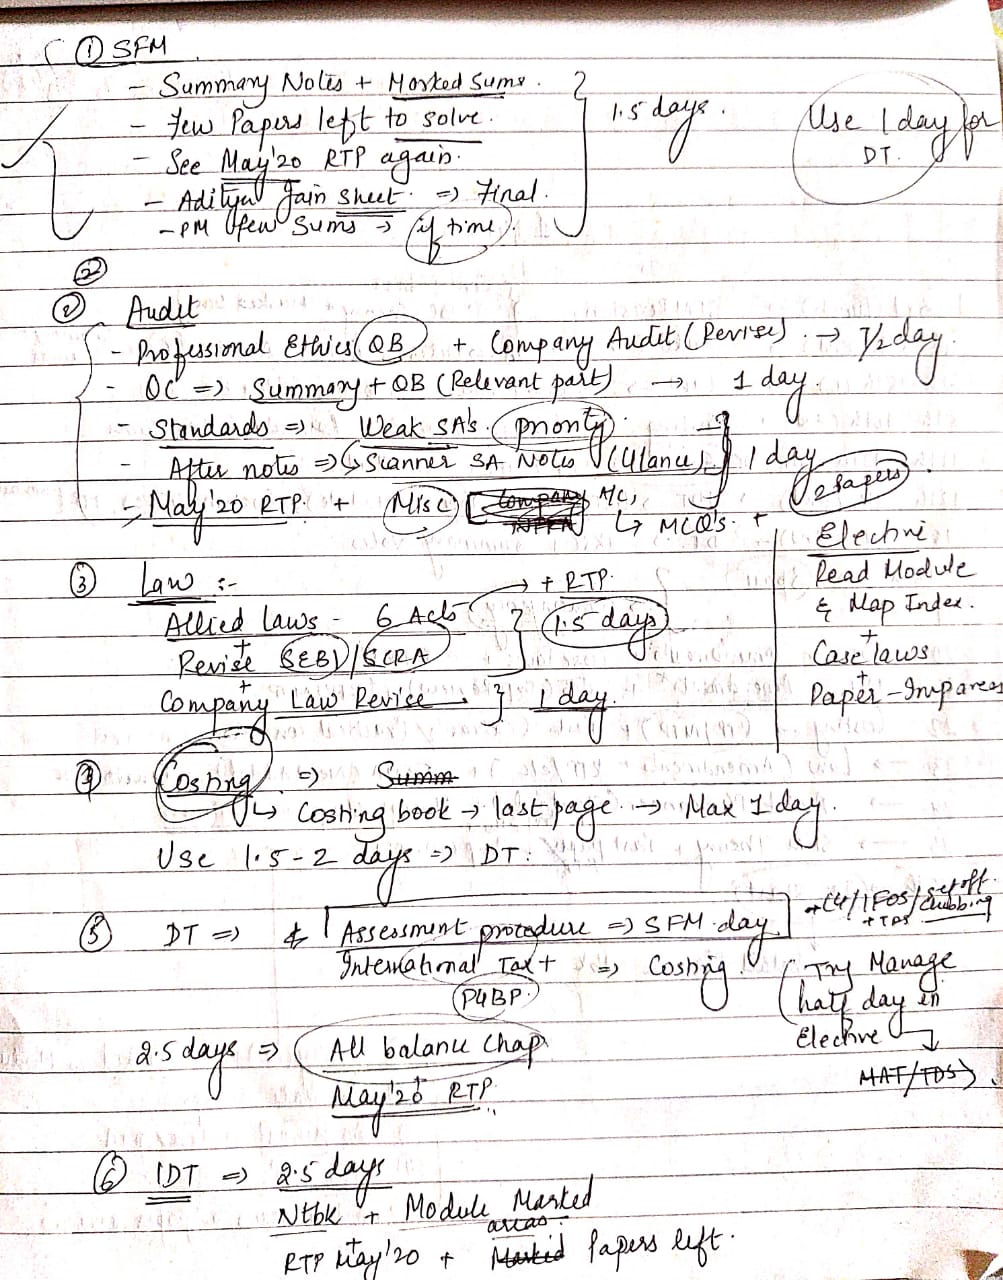 ① SFM
- Summary Notes + Marked Sums.
- Few Papers left to solve.
- See May'20 RTP again.
- Aditya Jain Sheet. => Final.
- PM few Sums → if time.
1.5 days.
Use 1 day for
DT.
②
② Audit
- Professional Ethics QB + Company Audit (Revise) → 1/2 day.
- OC => Summary + QB (Relevant part) → 1 day.
- Standards => Weak SA's. priority.
- After notes => Scanner SA Notes (Glance) 1 day
- May'20 RTP. + Misc A/C,
↳ MCQ's. + 2 Papers
③ Law :-
Allied laws - 6 Acts → + RTP.
+
Revise SEBI/SCRA 1.5 days
+
Company Law Revise. 1 day.
Elective
Read Module
& Map Index.
+
Case laws
+
Paper -
④ Costing => Summ
↳ Costing book → last page. → Max 1 day.
Use 1.5-2 days => DT.
⑤ DT => & Assessment procedure => SFM day
+ CG/IFOS/Set off.
+ TDS Clubbing
International Tax + => Costing.
PGBP.
Try Manage
half day in
Elective
↓
MAT/TDS
2.5 days => All balance Chap
+
May'20 RTP.
⑥ IDT => 2.5 days
Ntbk + Module Marked
areas.
+
RTP May'20 + Marked Papers left.